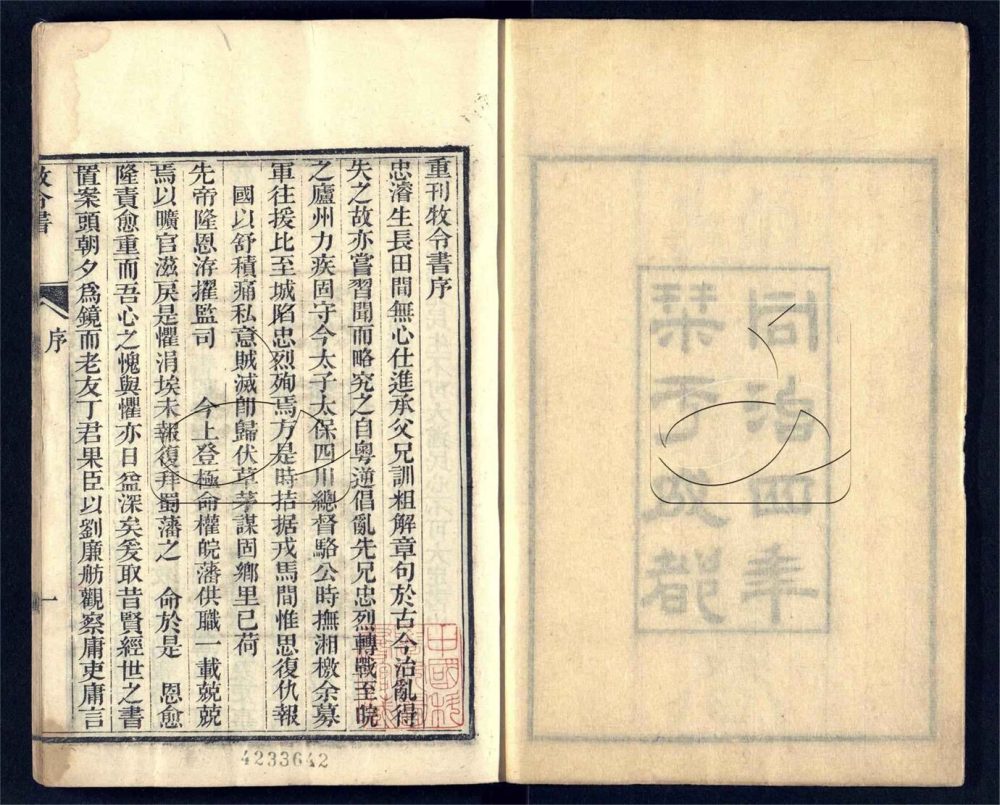 同治四年
栞于成都
重刊牧令書序
忠濬生長田間無心仕進承父兄訓粗解章句於古今治亂得
失之故亦嘗習聞而略究之自粵逆倡亂先兄忠烈轉戰至皖
之廬州力疾固守今太子太保四川總督駱公時撫湘檄余募
軍往援比至城陷忠烈殉焉方是時拮据戎馬間惟思復仇報
國以舒積痛私意賊滅卽歸伏草茅謀固鄉里已荷
先帝隆恩洊擢監司 今上登極命權皖藩供職一載兢兢
焉以曠官滋戾是懼涓埃未報復拜蜀藩之 命於是 恩愈
隆責愈重而吾心之愧與懼亦日益深矣爰取昔賢經世之書
置案頭朝夕爲鏡而老友丁君果臣以劉廉舫觀察庸吏庸言
牧令書
序
一
4233642